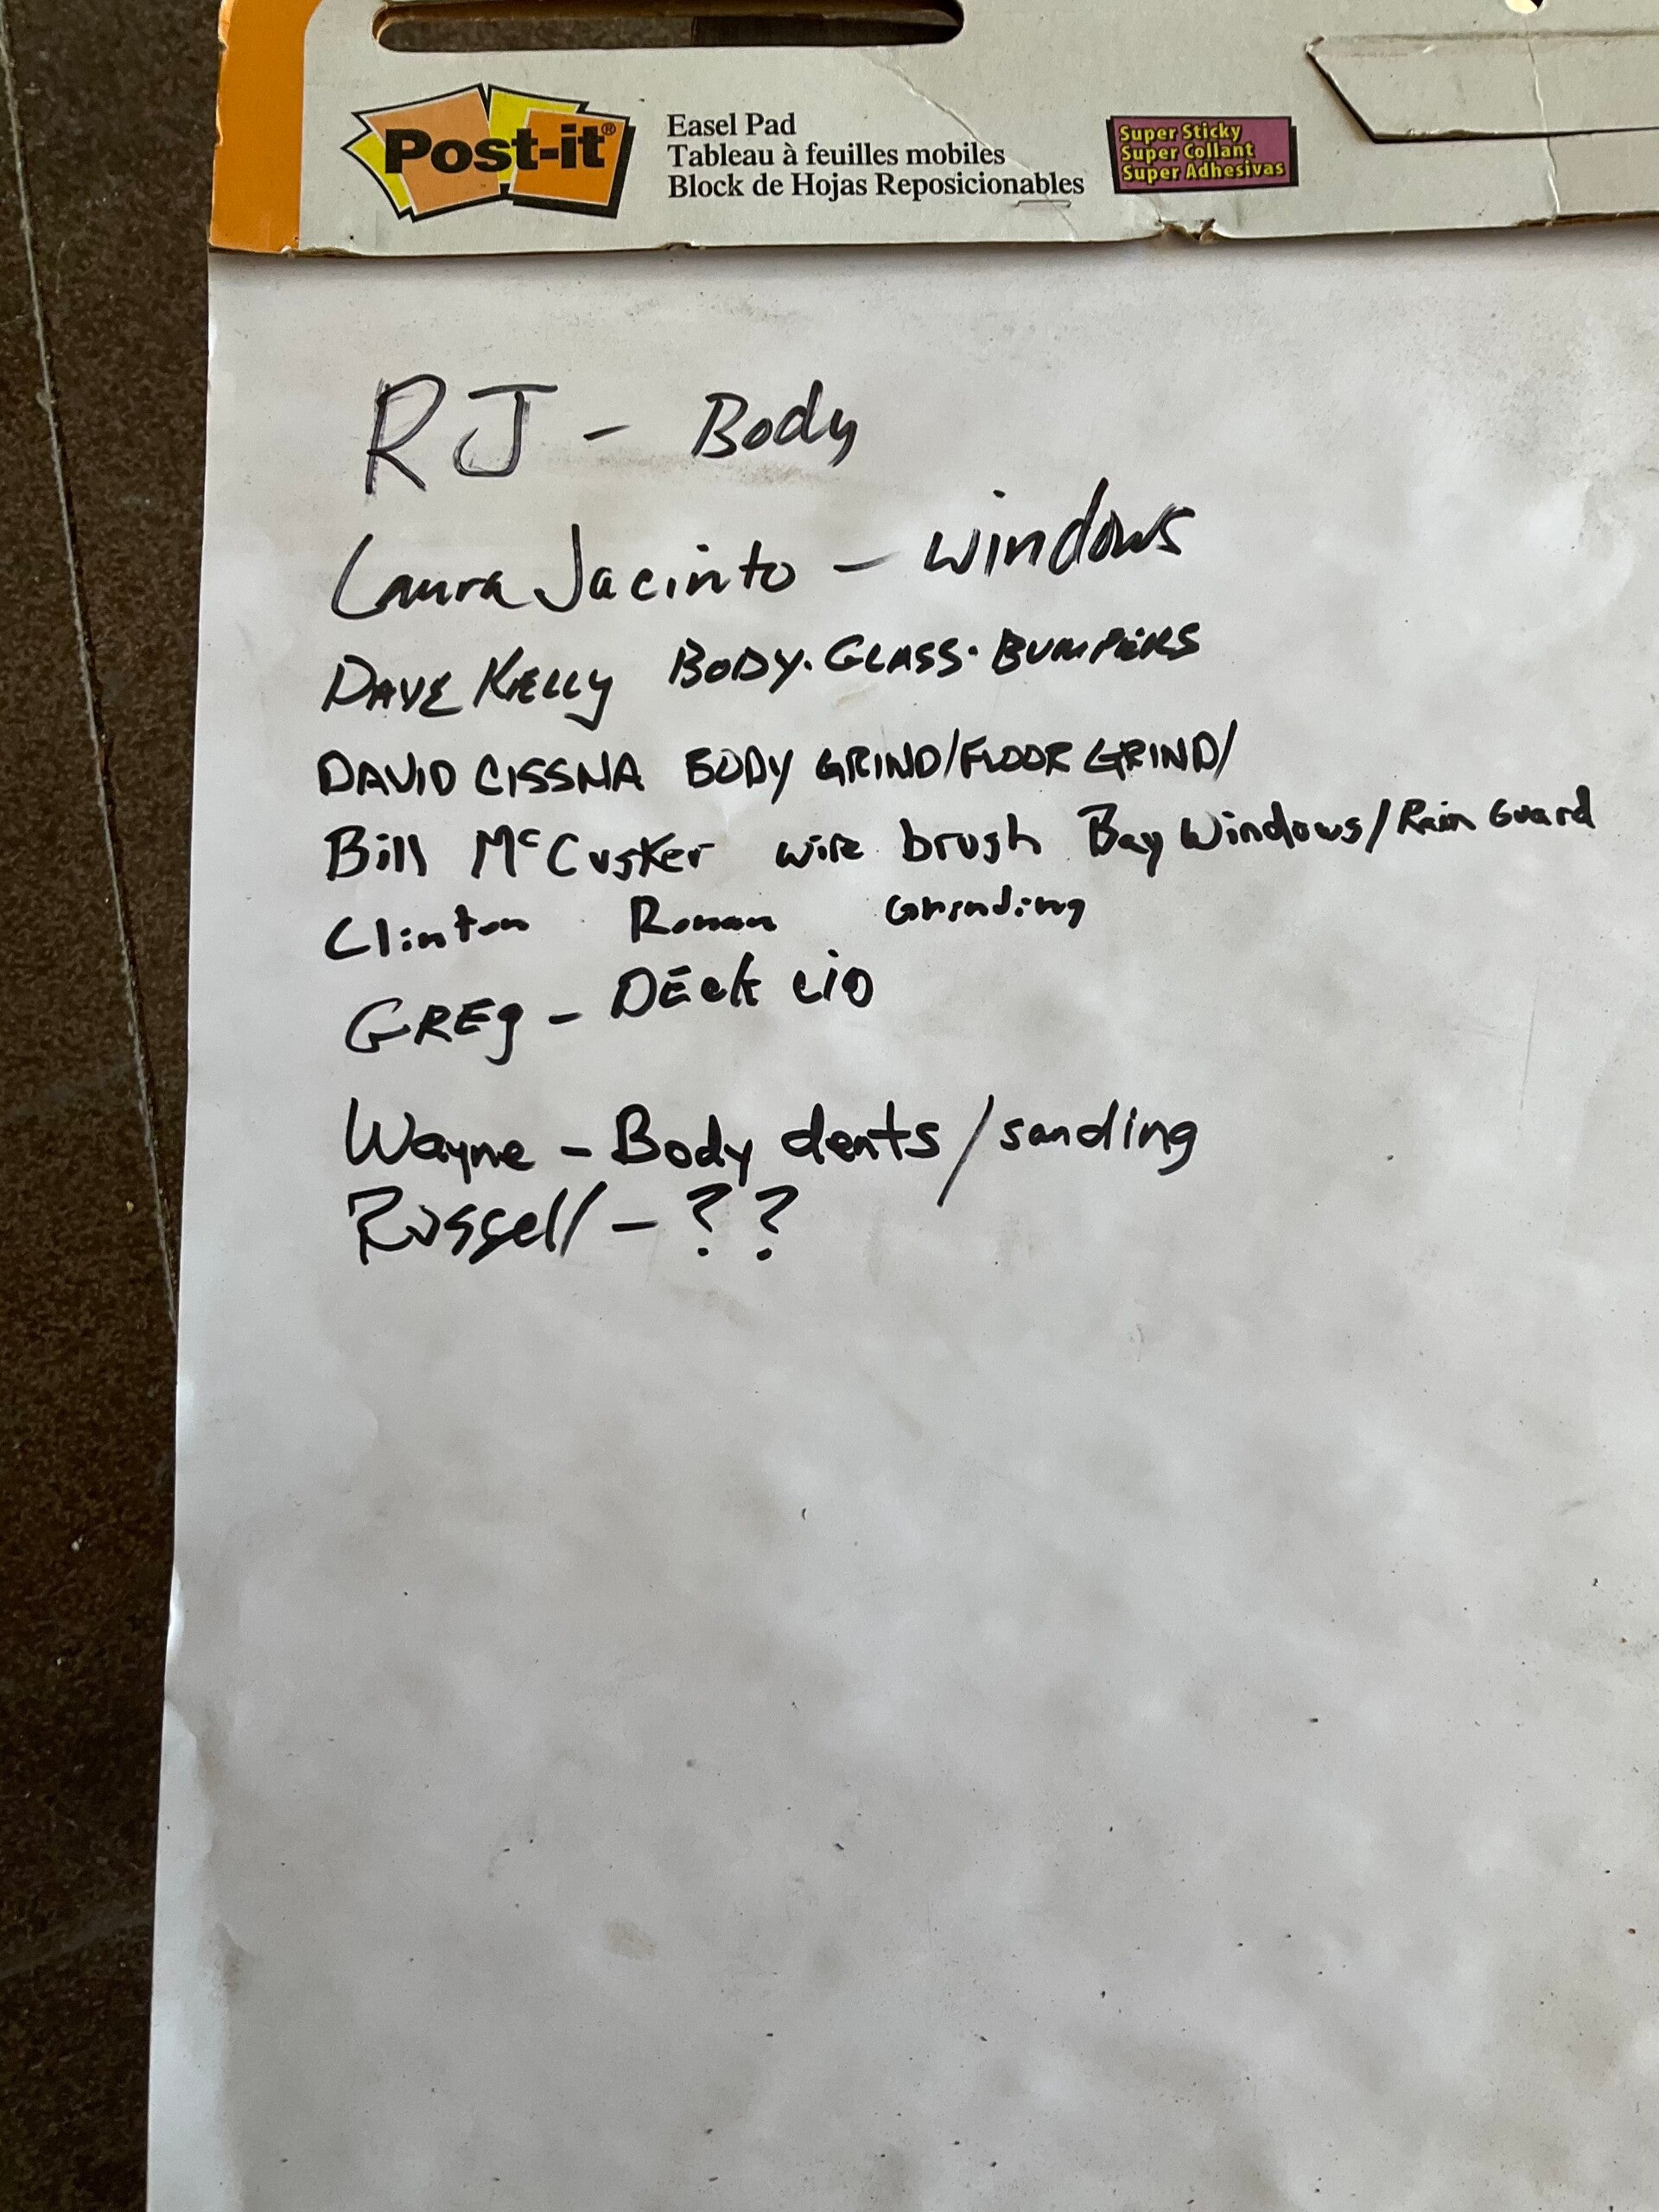 Post-it®
Easel Pad
Tableau à feuilles mobiles
Block de Hojas Reposicionables
Super Sticky
Super Collant
Super Adhesivas
RJ - Body
Laura Jacinto - windows
DAVE KELLY BODY·GLASS·BUMPERS
DAVID CISSNA BODY GRIND/FLOOR GRIND/
Bill McCusker wire brush Bay Windows/Rain Guard
Clinton Roman Grinding
GREg - DECK LID
Wayne - Body dents/sanding
Russell - ??